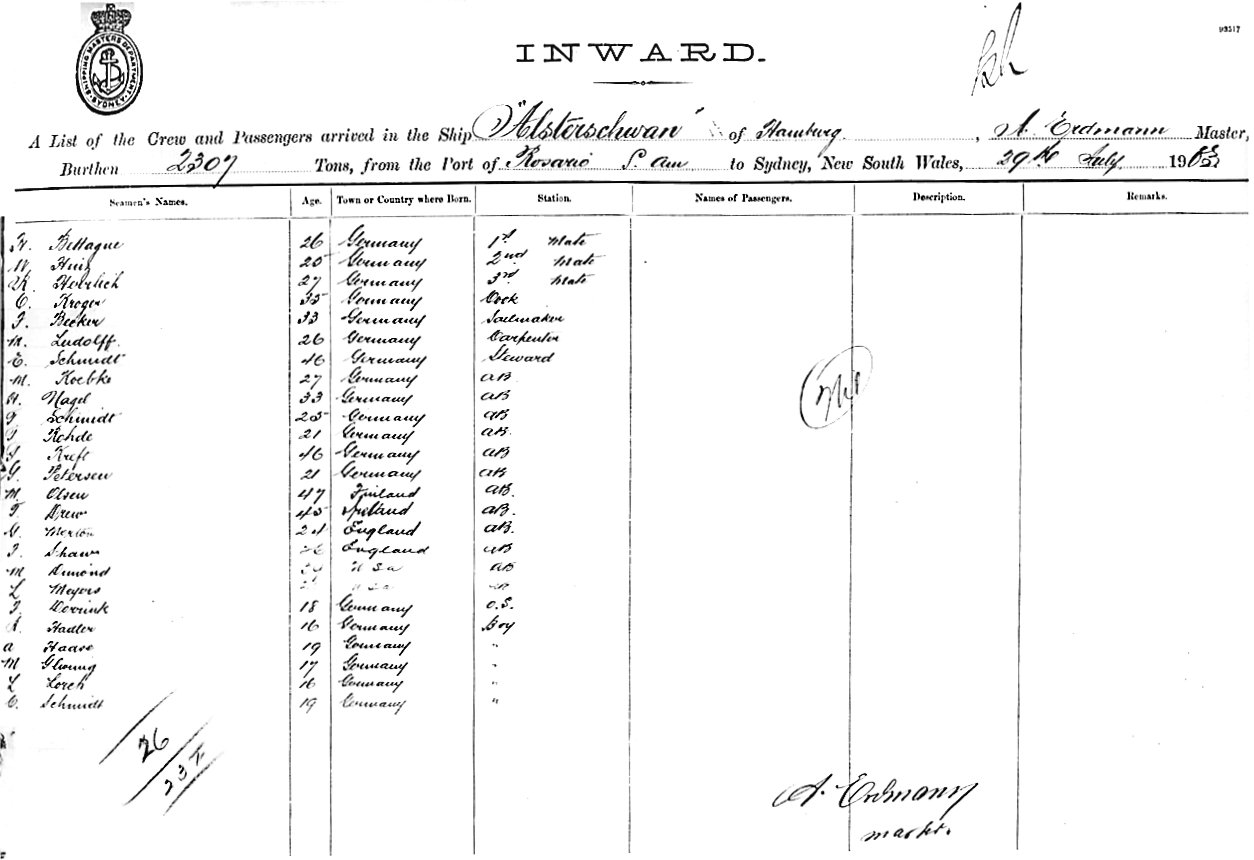 SHIPPING MASTERS DEPARTMENT SYDNEY
93517
INWARD.
A List of the Crew and Passengers arrived in the Ship "Alsterschwan" of Hamburg, A. Erdmann Master,
Burthen 2307 Tons, from the Port of Rosario S. Am to Sydney, New South Wales, 29th July 190
Seamen's Names. Age. Town or Country where Born. Station. Names of Passengers. Description. Remarks.
Bettaque 26 Germany 1st Mate
Germany 2nd Mate
Herrlich 27 Germany 3rd Mate
C. Kroger 35 Germany Cook
F. Becker 33 Germany Sailmaker
M. Ludolff. 26 Germany Carpenter
E. Schmidt 46 Germany Steward
M. Koebke 27 Germany AB
H. Nagel 33 Germany AB
F Schmidt 25 Germany AB
Rohde 21 Germany AB.
Kreft 46 Germany AB
G. Petersen 21 Germany AB
M. Olsen 47 Finland AB.
Drew 45 AB.
G. Merton 24 England AB.
Shaw 26 England AB
M Dimond USA AB
L Meyers USA
18 Germany O.S.
Hadler 16 Germany Boy
A Haase 19 Germany "
M 17 Germany "
L Lorch 16 Germany "
C. Schmidt 19 Germany "
26
23
A. Erdmann
master.